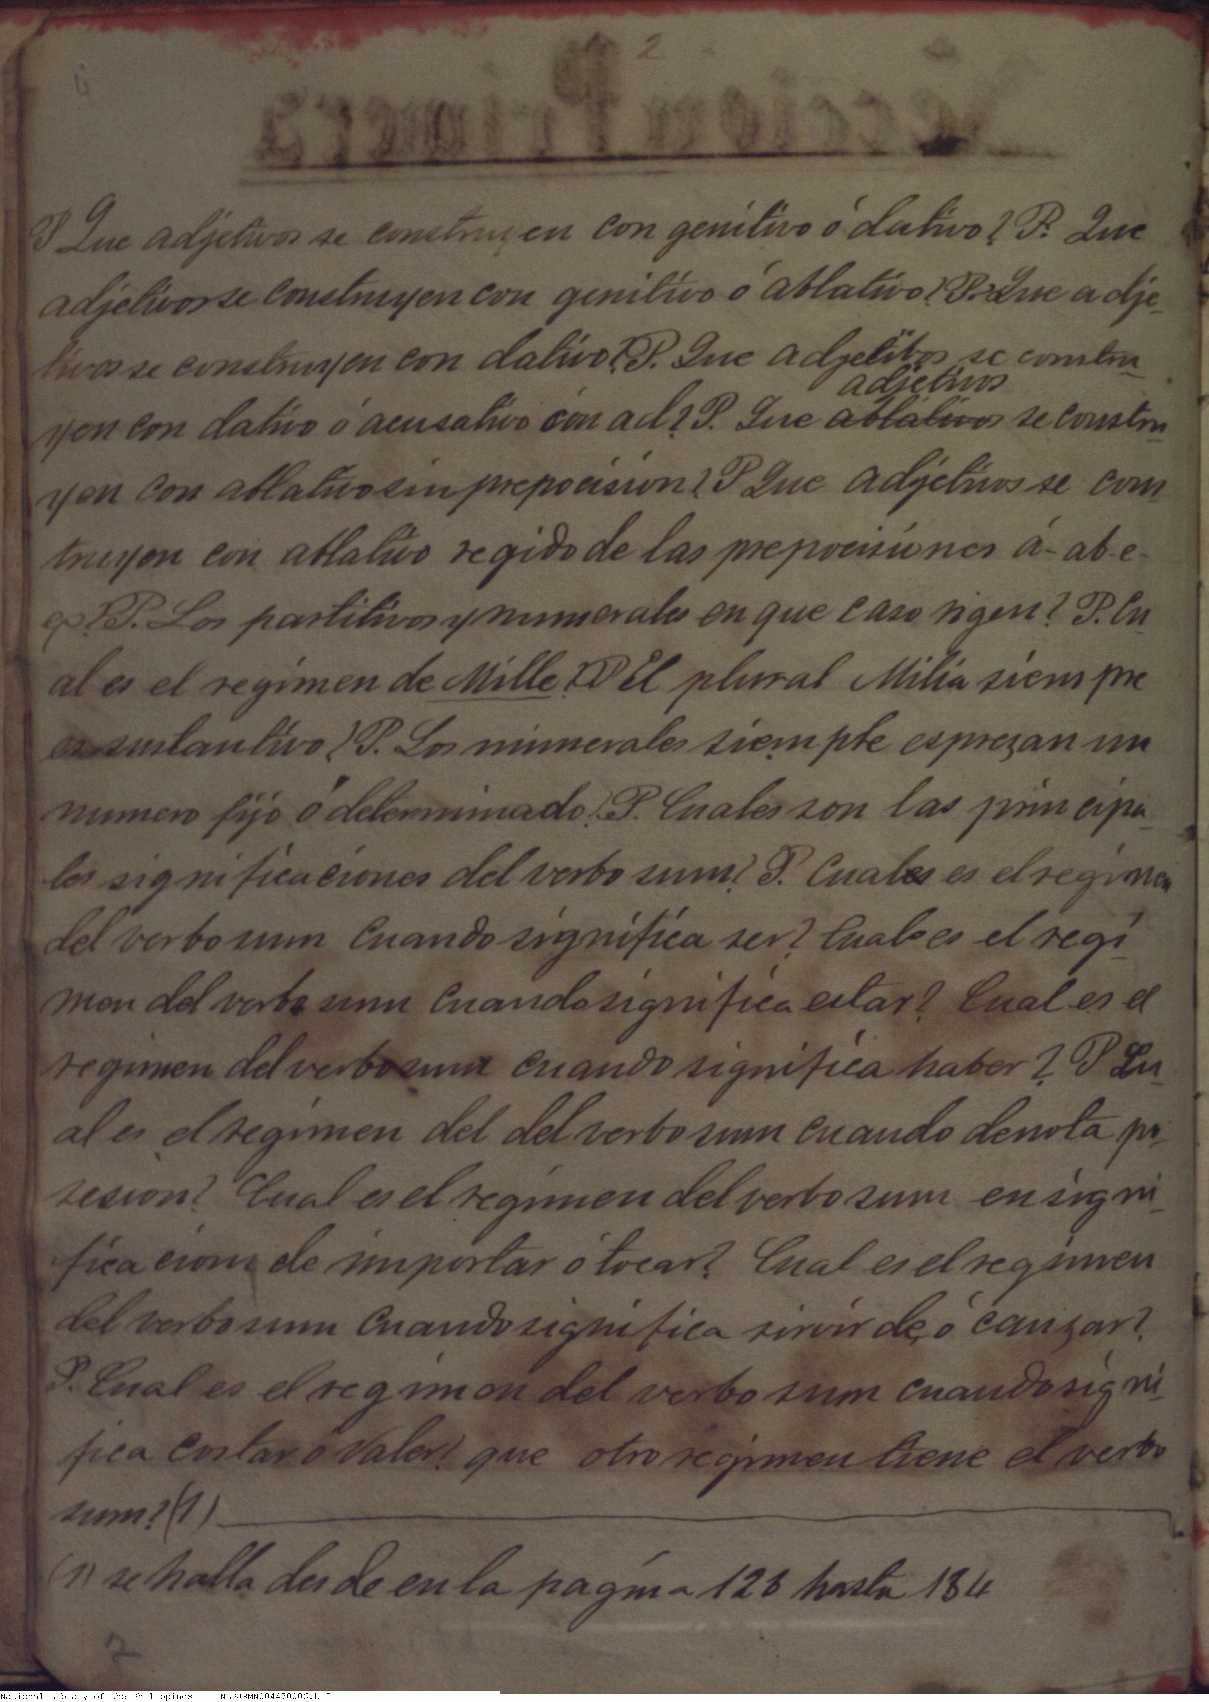 2
P Que adjetivos se construyen con genitivo ó dativo? P. Que
adjetivos se construyen con genitivo ó ablativo? P. Que adje-
tivos se construyen con dativo? P. Que adjetibos se constru-
adjetivos
yen con dativo ó acusativo con ad? P. Que ablativos se constru-
yen con ablativo sin prepocision? P Que adjetivos se cons-
truyen con ablativo regido de las prepocisiones á-ab-e-
ex? P. Los partitivos y numerales en que caso rigen? P. Cu-
al es el regimen de Mille? P El plural Milia siempre
es sustantivo? P. Los numerales siempre esprezan un
numero fijo ó determinado? P. Cuales son las principa-
les significaciones del verbo sum? P. Cuales es el regimen
del verbo sum cuando significa ser? Cuales es el regi-
men del verbo sum cuando significa estar? Cual es el
regimen del verbo sum cuando significa haber? P Cu-
al es el regimen del del verbo sum cuando denota po-
sesion? Cual es el regimen del verbo sum en signi-
ficacion de importar ó tocar? Cual es el regimen
del verbo sum cuando significa sirvir de, ó cauzar?
P. Cual es el regimen del verbo sum cuando signi-
fica costar ó valer? que otro regimen tiene el verbo
sum? (1)
(1) se halla desde en la pagina 128 hasta 184
National Library of the Philippines